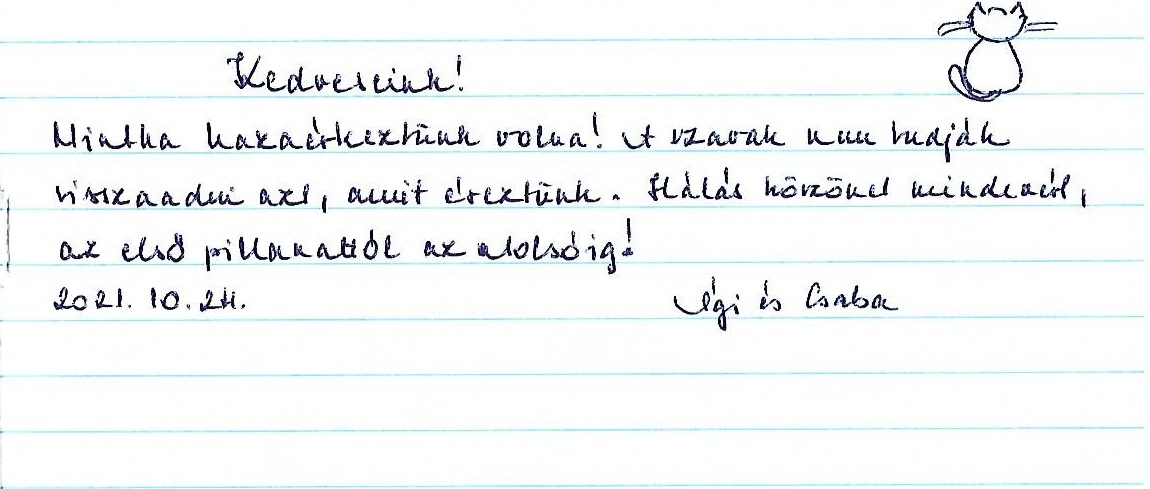 Kedveseink!
Mintha hazaérkeztünk volna! A szavak nem tudják
visszaadni azt, amit éreztünk. Hálás köszönet mindenért,
az első pillanattól az utolsóig!
2021. 10. 24. Ági és Csaba